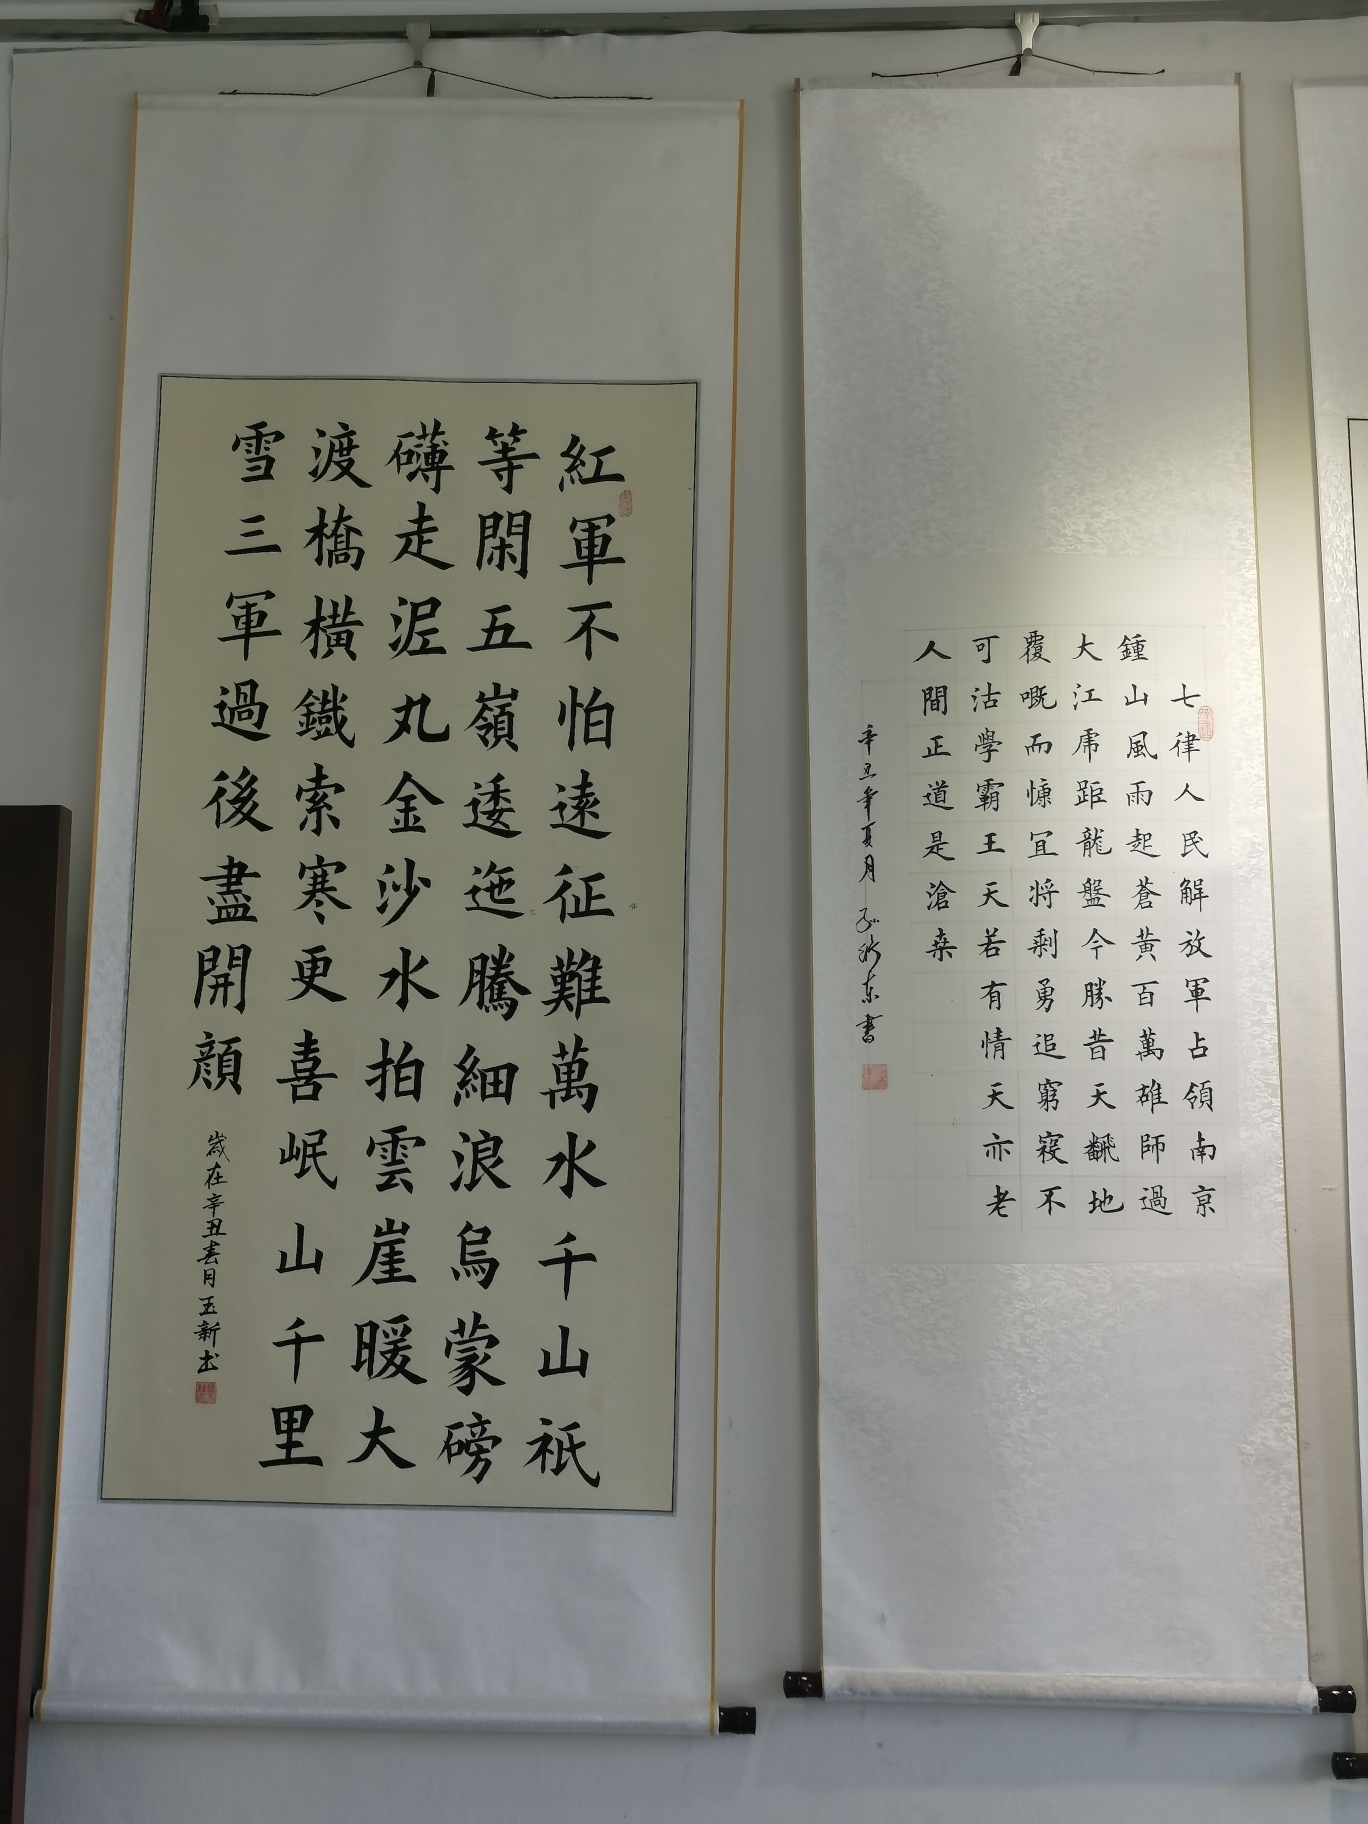 紅軍不怕遠征難萬水千山祇
等閑五嶺逶迤騰細浪烏蒙磅
礴走泥丸金沙水拍雲崖暖大
渡橋橫鐵索寒更喜岷山千里
雪三軍過後盡開顔
歲在辛丑春月玉新书
七律人民解放軍占領南京
鍾山風雨起蒼黃百萬雄師過
大江虎距龍盤今勝昔天飜地
覆嘅而慷宜將剩勇追窮寇不
可沽學霸王天若有情天亦老
人間正道是滄桑
辛丑年夏月 东書